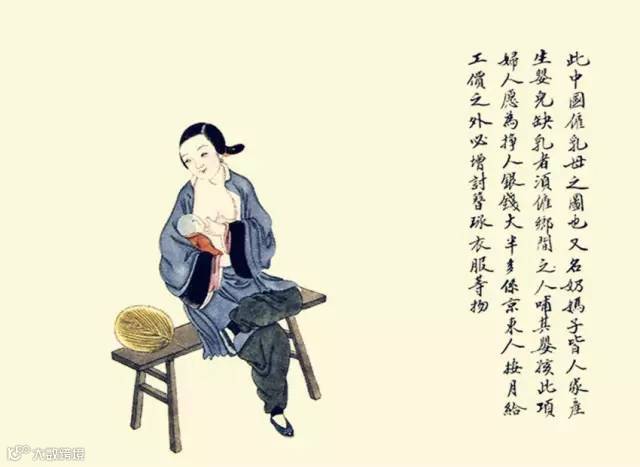 此中國僱乳母之圖也又名奶媽子皆人家產
生嬰兒缺乳者須僱鄉間之人哺其嬰孩此項
婦人愿為掙人銀錢大半多係京東人按月給
工價之外必增討簪珠衣服等物
大數跨境